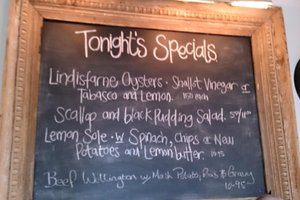 Tonight's Specials
Lindisfarne Oysters - Shallot Vinegar or
Tabasco and Lemon. 1.50 each
Scallop and black Pudding Salad.
Lemon Sole - w Spinach, Chips or New
Potatoes and Lemon butter.
Beef Willington w. Mash Potato, & Gravy
10-95